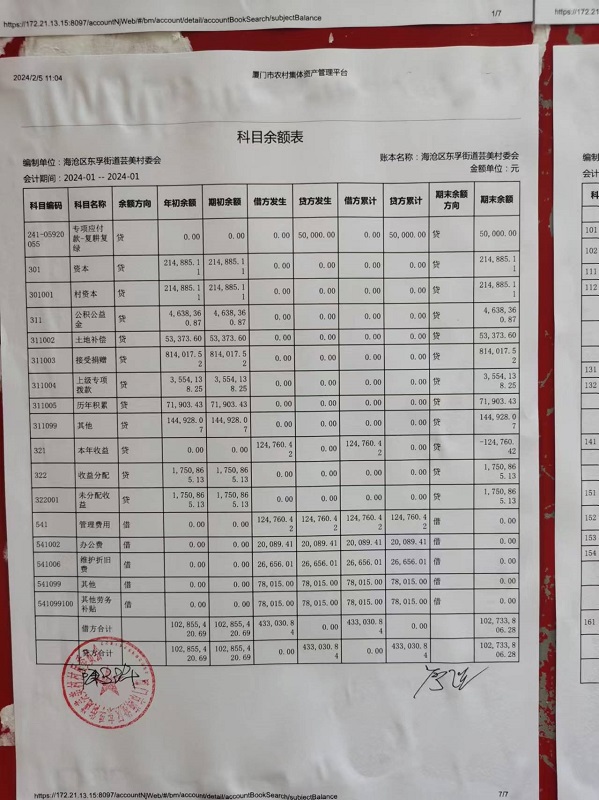 https://172.21.13.15:8097/accountNjWeb/#/bm/account/detail/accountBookSearch/subjectBalance 1/7
2024/2/5 11:04 厦门市农村集体资产管理平台
科目余额表
编制单位：海沧区东孚街道芸美村委会 账本名称：海沧区东孚街道芸美村委会
会计期间：2024-01 -- 2024-01 金额单位：元
科目编码 科目名称 余额方向 年初余额 期初余额 借方发生 贷方发生 借方累计 贷方累计 期末余额方向 期末余额
241-05920055 专项应付款-复耕复绿 贷 0.00 0.00 0.00 50,000.00 0.00 50,000.00 贷 50,000.00
301 资本 贷 214,885.11 214,885.11 0.00 0.00 0.00 0.00 贷 214,885.11
301001 村资本 贷 214,885.11 214,885.11 0.00 0.00 0.00 0.00 贷 214,885.11
311 公积公益金 贷 4,638,360.87 4,638,360.87 0.00 0.00 0.00 0.00 贷 4,638,360.87
311002 土地补偿 贷 53,373.60 53,373.60 0.00 0.00 0.00 0.00 贷 53,373.60
311003 接受捐赠 贷 814,017.52 814,017.52 0.00 0.00 0.00 0.00 贷 814,017.52
311004 上级专项拨款 贷 3,554,138.25 3,554,138.25 0.00 0.00 0.00 0.00 贷 3,554,138.25
311005 历年积累 贷 71,903.43 71,903.43 0.00 0.00 0.00 0.00 贷 71,903.43
311099 其他 贷 144,928.07 144,928.07 0.00 0.00 0.00 0.00 贷 144,928.07
321 本年收益 贷 0.00 0.00 124,760.42 0.00 124,760.42 0.00 贷 -124,760.42
322 收益分配 贷 1,750,865.13 1,750,865.13 0.00 0.00 0.00 0.00 贷 1,750,865.13
322001 未分配收益 贷 1,750,865.13 1,750,865.13 0.00 0.00 0.00 0.00 贷 1,750,865.13
541 管理费用 借 0.00 0.00 124,760.42 124,760.42 124,760.42 124,760.42 借 0.00
541002 办公费 借 0.00 0.00 20,089.41 20,089.41 20,089.41 20,089.41 借 0.00
541006 维护折旧费 借 0.00 0.00 26,656.01 26,656.01 26,656.01 26,656.01 借 0.00
541099 其他 借 0.00 0.00 78,015.00 78,015.00 78,015.00 78,015.00 借 0.00
541099100 其他劳务补贴 借 0.00 0.00 78,015.00 78,015.00 78,015.00 78,015.00 借 0.00
借方合计 102,855,420.69 102,855,420.69 433,030.84 0.00 433,030.84 0.00 102,733,806.28
贷方合计 102,855,420.69 102,855,420.69 0.00 433,030.84 0.00 433,030.84 102,733,806.28
https://172.21.13.15:8097/accountNjWeb/#/bm/account/detail/accountBookSearch/subjectBalance 7/7
https://172.21
编制
会计
101
102
111
112
131
132
141
151
152
153
154
161